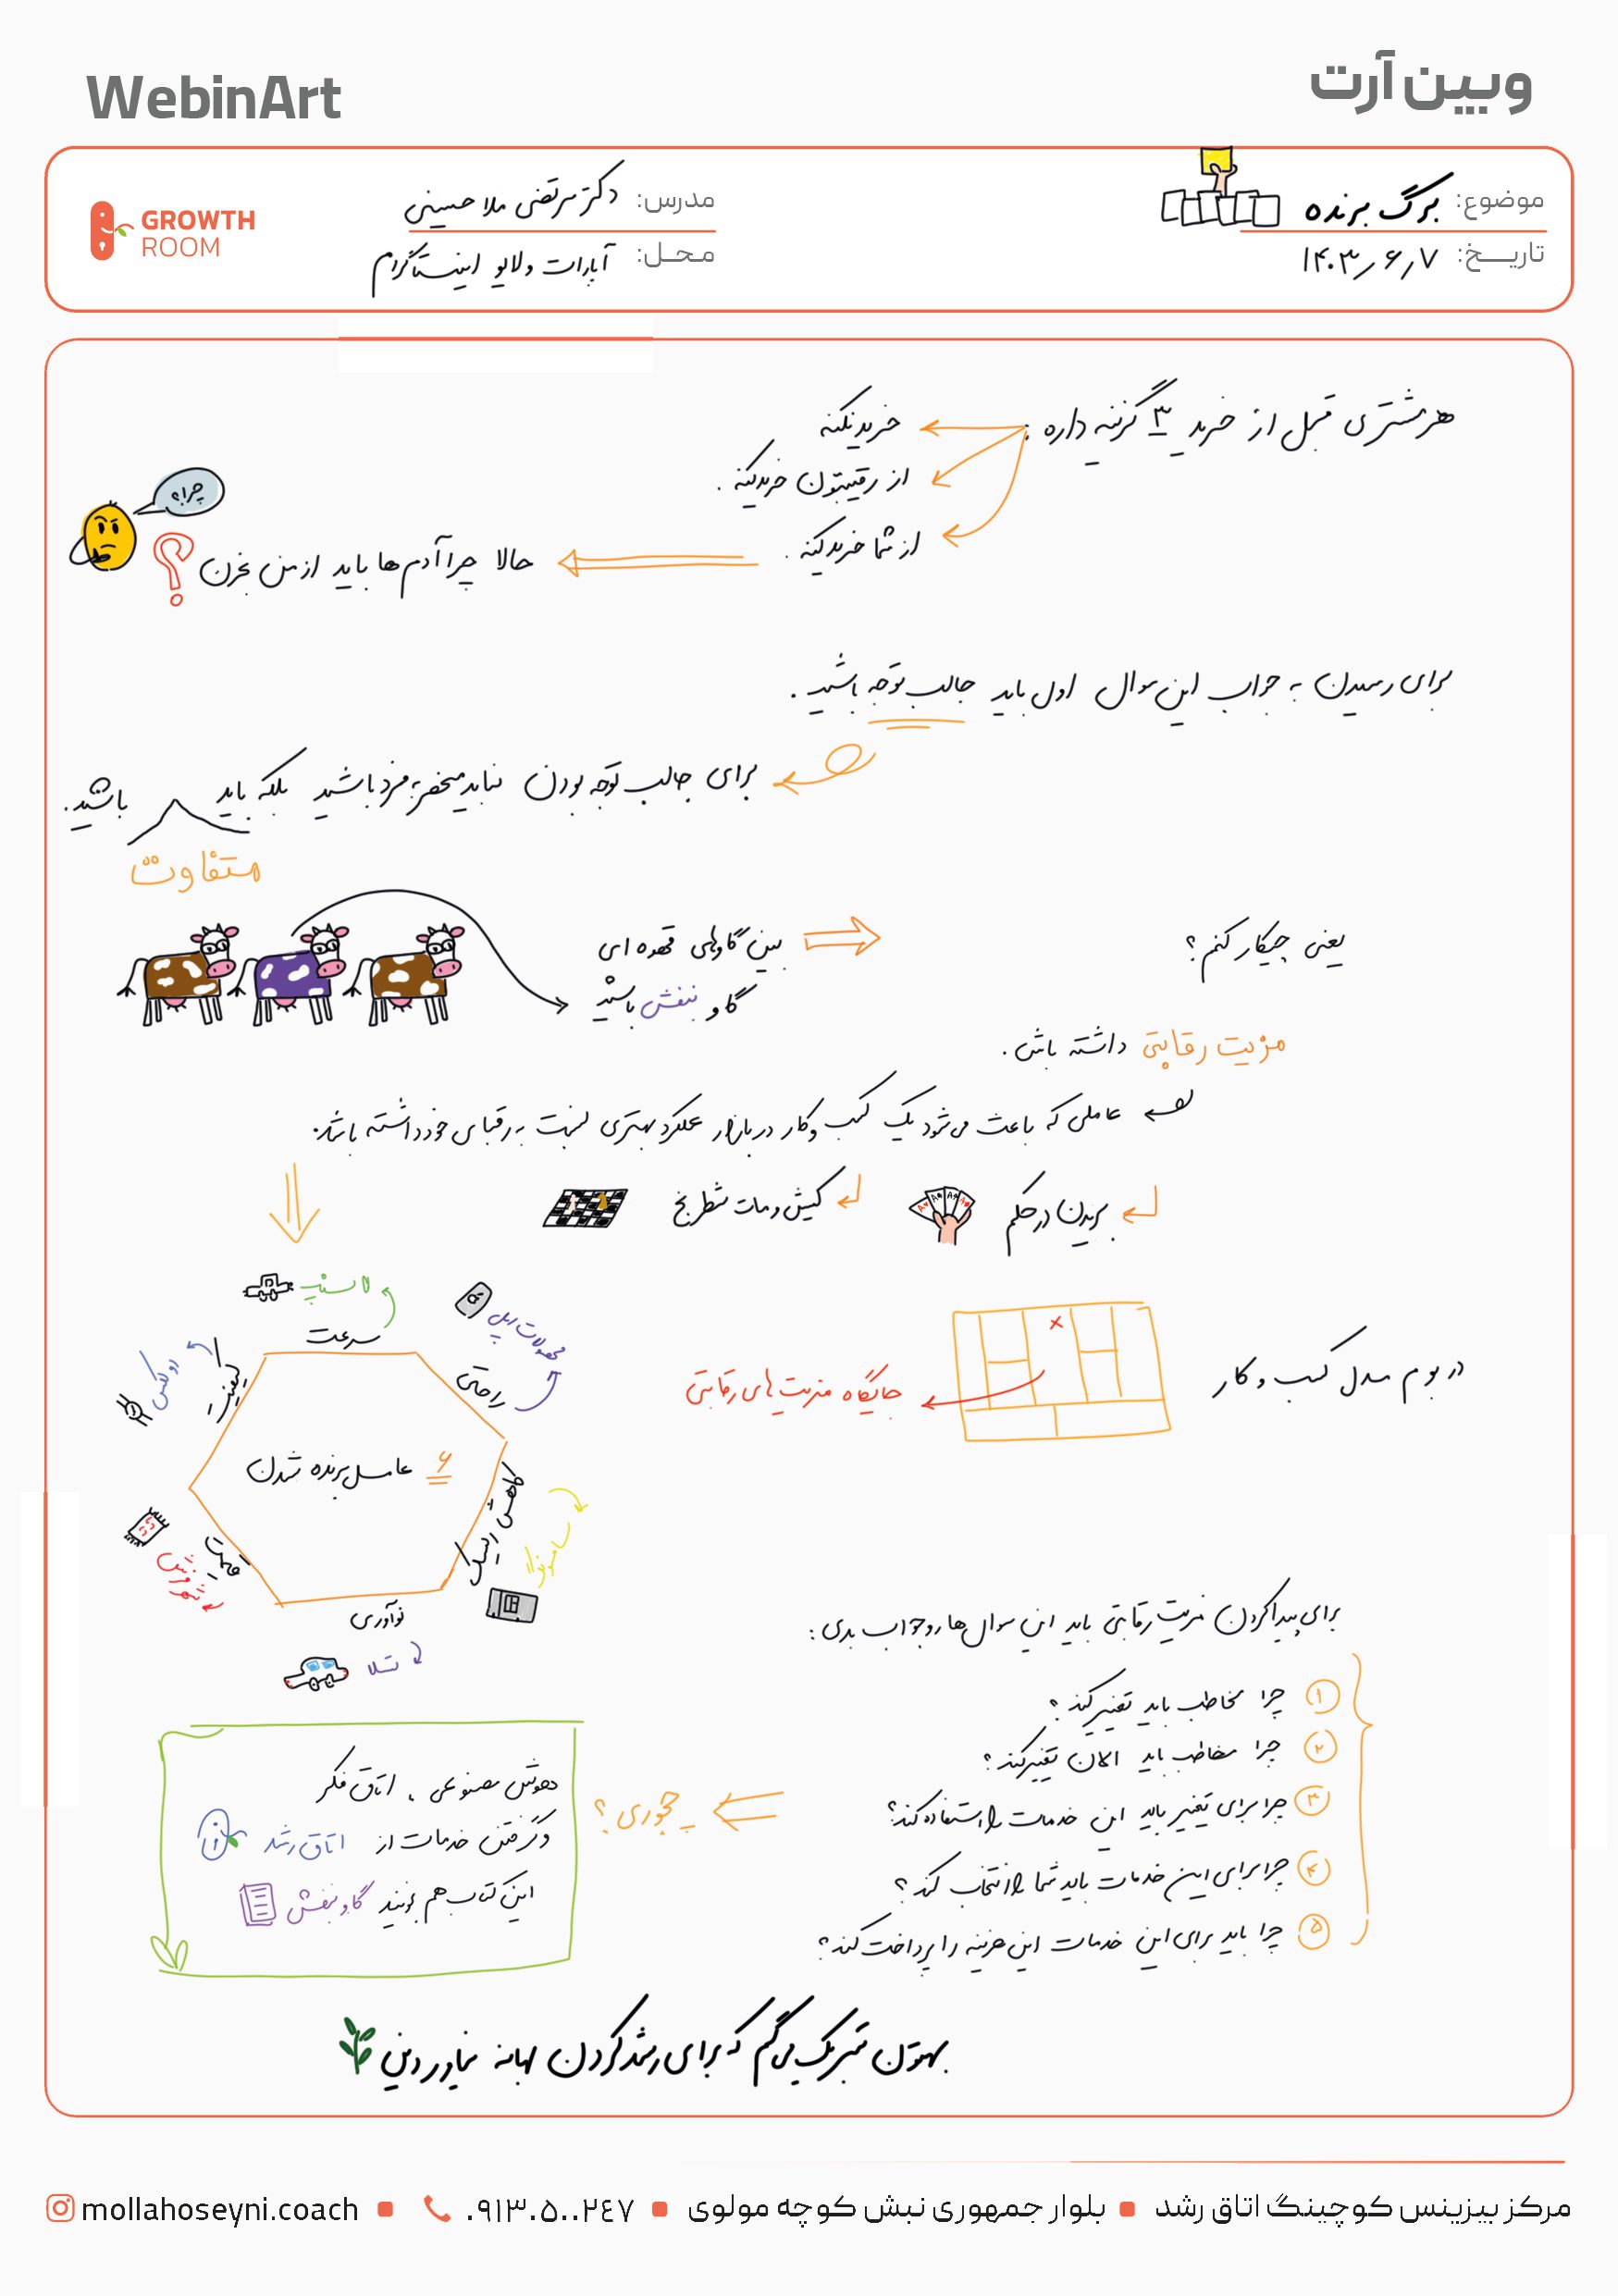 WebinArt
وبین آرت
موضوع: برگ برنده
مدرس: دکتر مرتضی ملاحسینی
GROWTH ROOM
تاریـخ: ۱۴۰۳/۶/۷
محـل: آپارات و لایو اینستاگرام
هر مشتری قبل از خرید ۳ گزینه داره :
خرید نکنه
از رقیبتون خرید کنه .
از شما خرید کنه .
حالا چرا آدم ها باید از من بخرن ؟
چرا؟
برای رسیدن به جواب این سوال اول باید جالب توجه باشید .
برای جالب توجه بودن نباید منحصر به فرد باشید بلکه باید متفاوت باشید.
یعنی چیکار کنم ؟
بین گاوهای قهوه ای
گاو بنفش باشید
مزیت رقابتی داشته باش .
عاملی که باعث می شود یک کسب و کار در بازار عملکرد بهتری نسبت به رقبای خود داشته باشد.
بریدن در حکم
کیش و مات شطرنج
در بوم مدل کسب و کار
جایگاه مزیت های رقابتی
۶ عامل برنده شدن
سرعت
اسنپ
راحتی
محصولات اپل
کاهش ریسک
سامسونگ
نوآوری
تسلا
قیمت
شهر فرش
کیفیت
رولکس
برای پیدا کردن مزیت رقابتی باید این سوال ها رو جواب بدی :
۱ چرا مخاطب باید تغییر کند ؟
۲ چرا مخاطب باید الان تغییر کند ؟
۳ چرا برای تغییر باید این خدمات را استفاده کند؟
۴ چرا برای این خدمات باید شما را انتخاب کند ؟
۵ چرا باید برای این خدمات این هزینه را پرداخت کند؟
چجوری ؟
هوش مصنوعی ، اتاق فکر
و گرفتن خدمات از اتاق رشد
این کتاب هم بخونید گاو بنفش
بهتون تبریک می گم که برای رشد کردن بهانه نیاوردین
مرکز بیزینس کوچینگ اتاق رشد ▪ بلوار جمهوری نبش کوچه مولوی ▪ ۰۹۱۳۰۵۰۰۲۴۷ ▪ mollahoseyni.coach